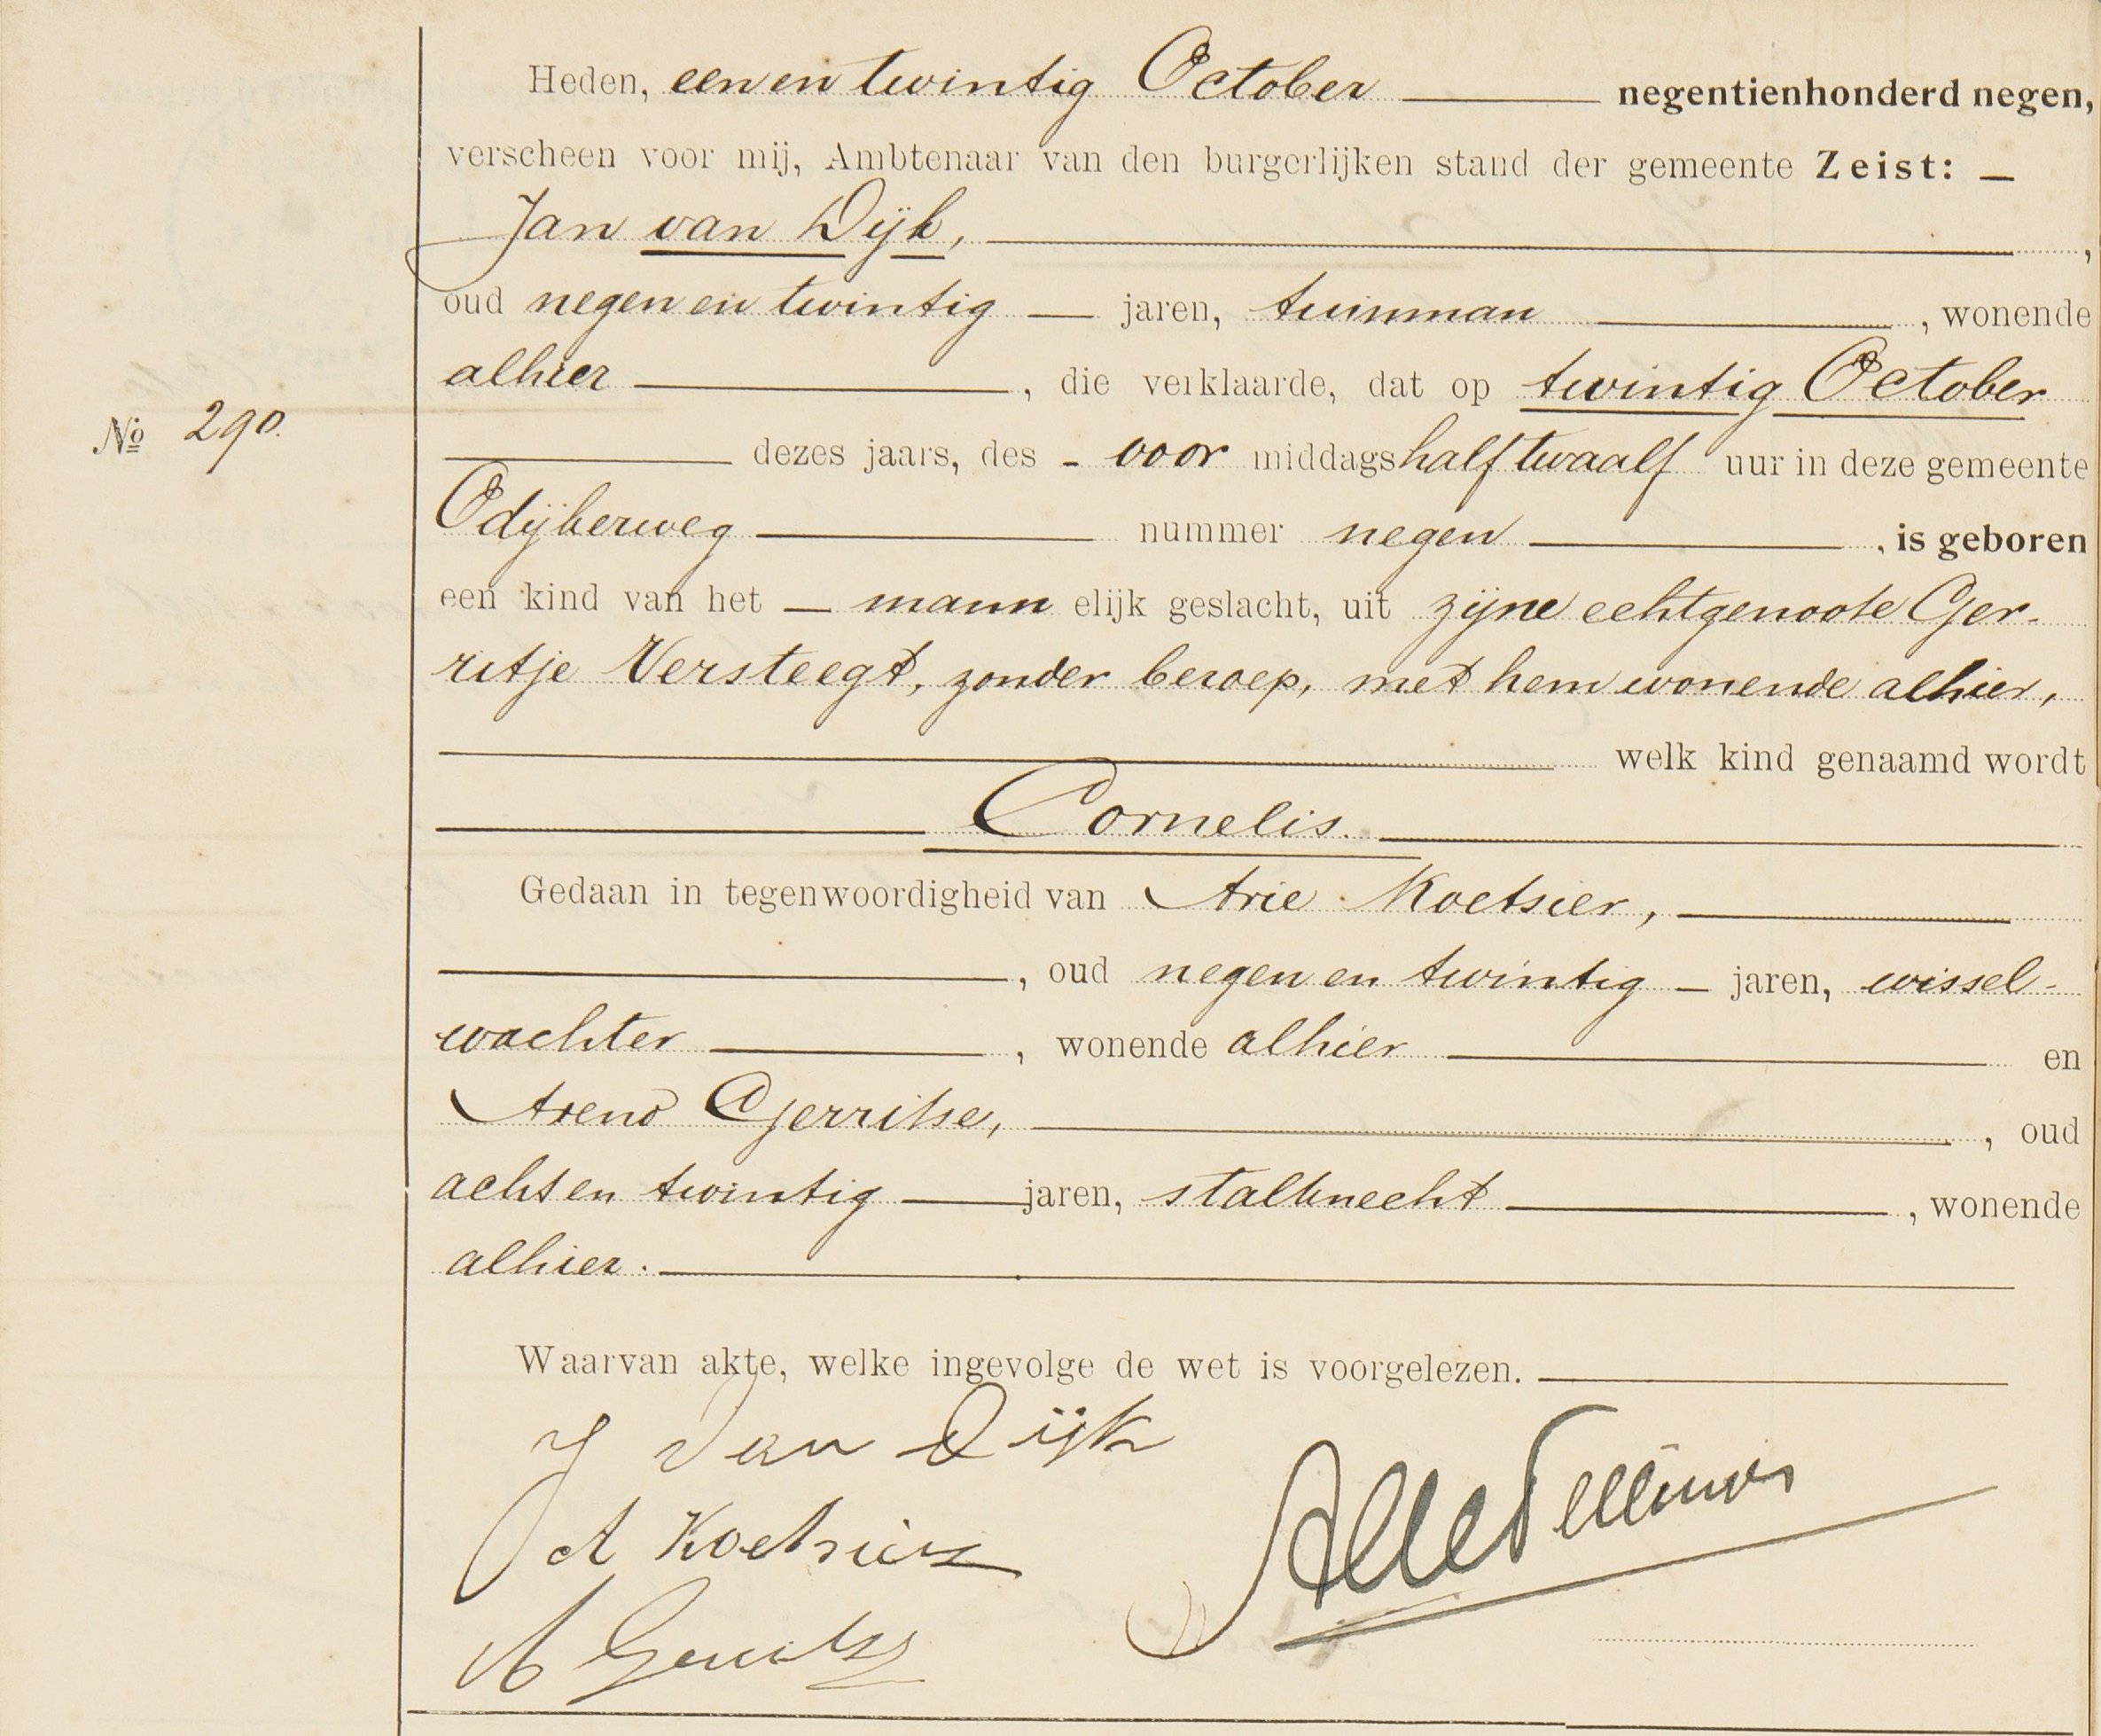 Heden, een en twintig October negentienhonderd negen,
verscheen voor mij, Ambtenaar van den burgerlijken stand der gemeente Zeist: —
Jan van Dijk, ,
oud negen en twintig — jaren, tuinman , wonende
alhier , die verklaarde, dat op twintig October
No 290.
dezes jaars, des - voor middags half twaalf uur in deze gemeente
Odijkerweg nummer negen , is geboren
een kind van het — mann elijk geslacht, uit zijne echtgenoote Ger-
ritje Versteegt, zonder beroep, met hem wonende alhier,
welk kind genaamd wordt
Cornelis.
Gedaan in tegenwoordigheid van Arie Koetsier,
, oud negen en twintig — jaren, wissel-
wachter , wonende alhier en
Arend Gerritse, , oud
acht en twintig — jaren, stalknecht , wonende
alhier.
Waarvan akte, welke ingevolge de wet is voorgelezen.
J van Dijk
A Koetsier
A Gerritse